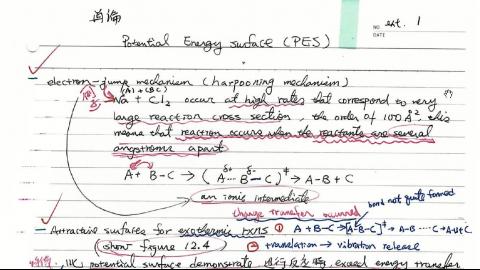 NO. ext. 1
DATE
Potential Energy surface (PES)
- electron-jump mechanism (harpooning mechanism)
(A) (BC)
Na + Cl2 occur at high rates that correspond to very
large reaction cross section, the order of 100 Å², this
means that reaction occurs when the reactants are several
angstroms apart
A + B-C → (A^δ+ ... B^δ- - C)^‡ → A-B + C
an ionic intermediate
charge transfer occurred
bond not quite formed
- Attractive surfaces for exothermic rxns ① A + B-C → [A-B-C]^‡ → A-B----C → A-B + C
(show figure 12.4) ② translation → vibration release
potential surface demonstrate 進行反應時, exceed energy transfer